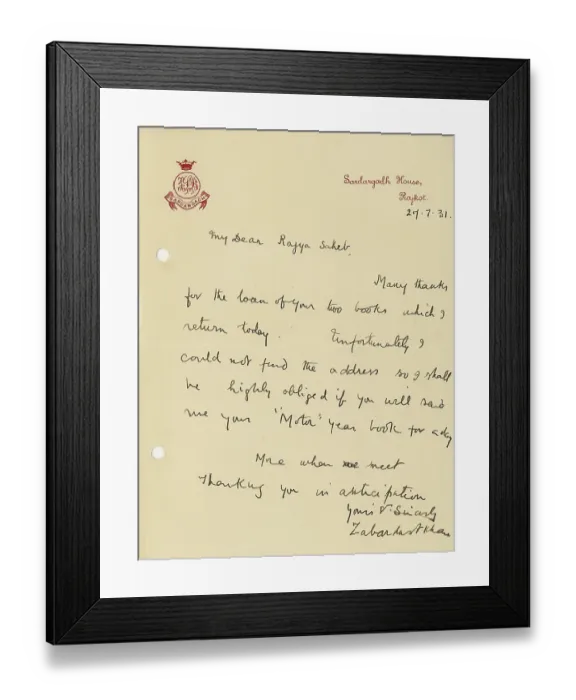 Sardargadh House,
Rajkot.
27.7.31.
My Dear Rajya Saheb,
Many thanks
for the loan of your two books which I
return today. Unfortunately I
could not find the address so I shall
be highly obliged if you will send
me your "Motor" year book for a day
More when we meet
Thanking you in anticipation
Yours V. Sincerely
Zabardast Khan